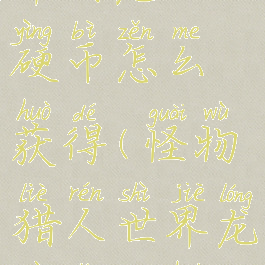 yìng bì zěn me
硬币怎么
huò dé guài wù
获得(怪物
liè rén shì jiè lóng
猎人世界龙